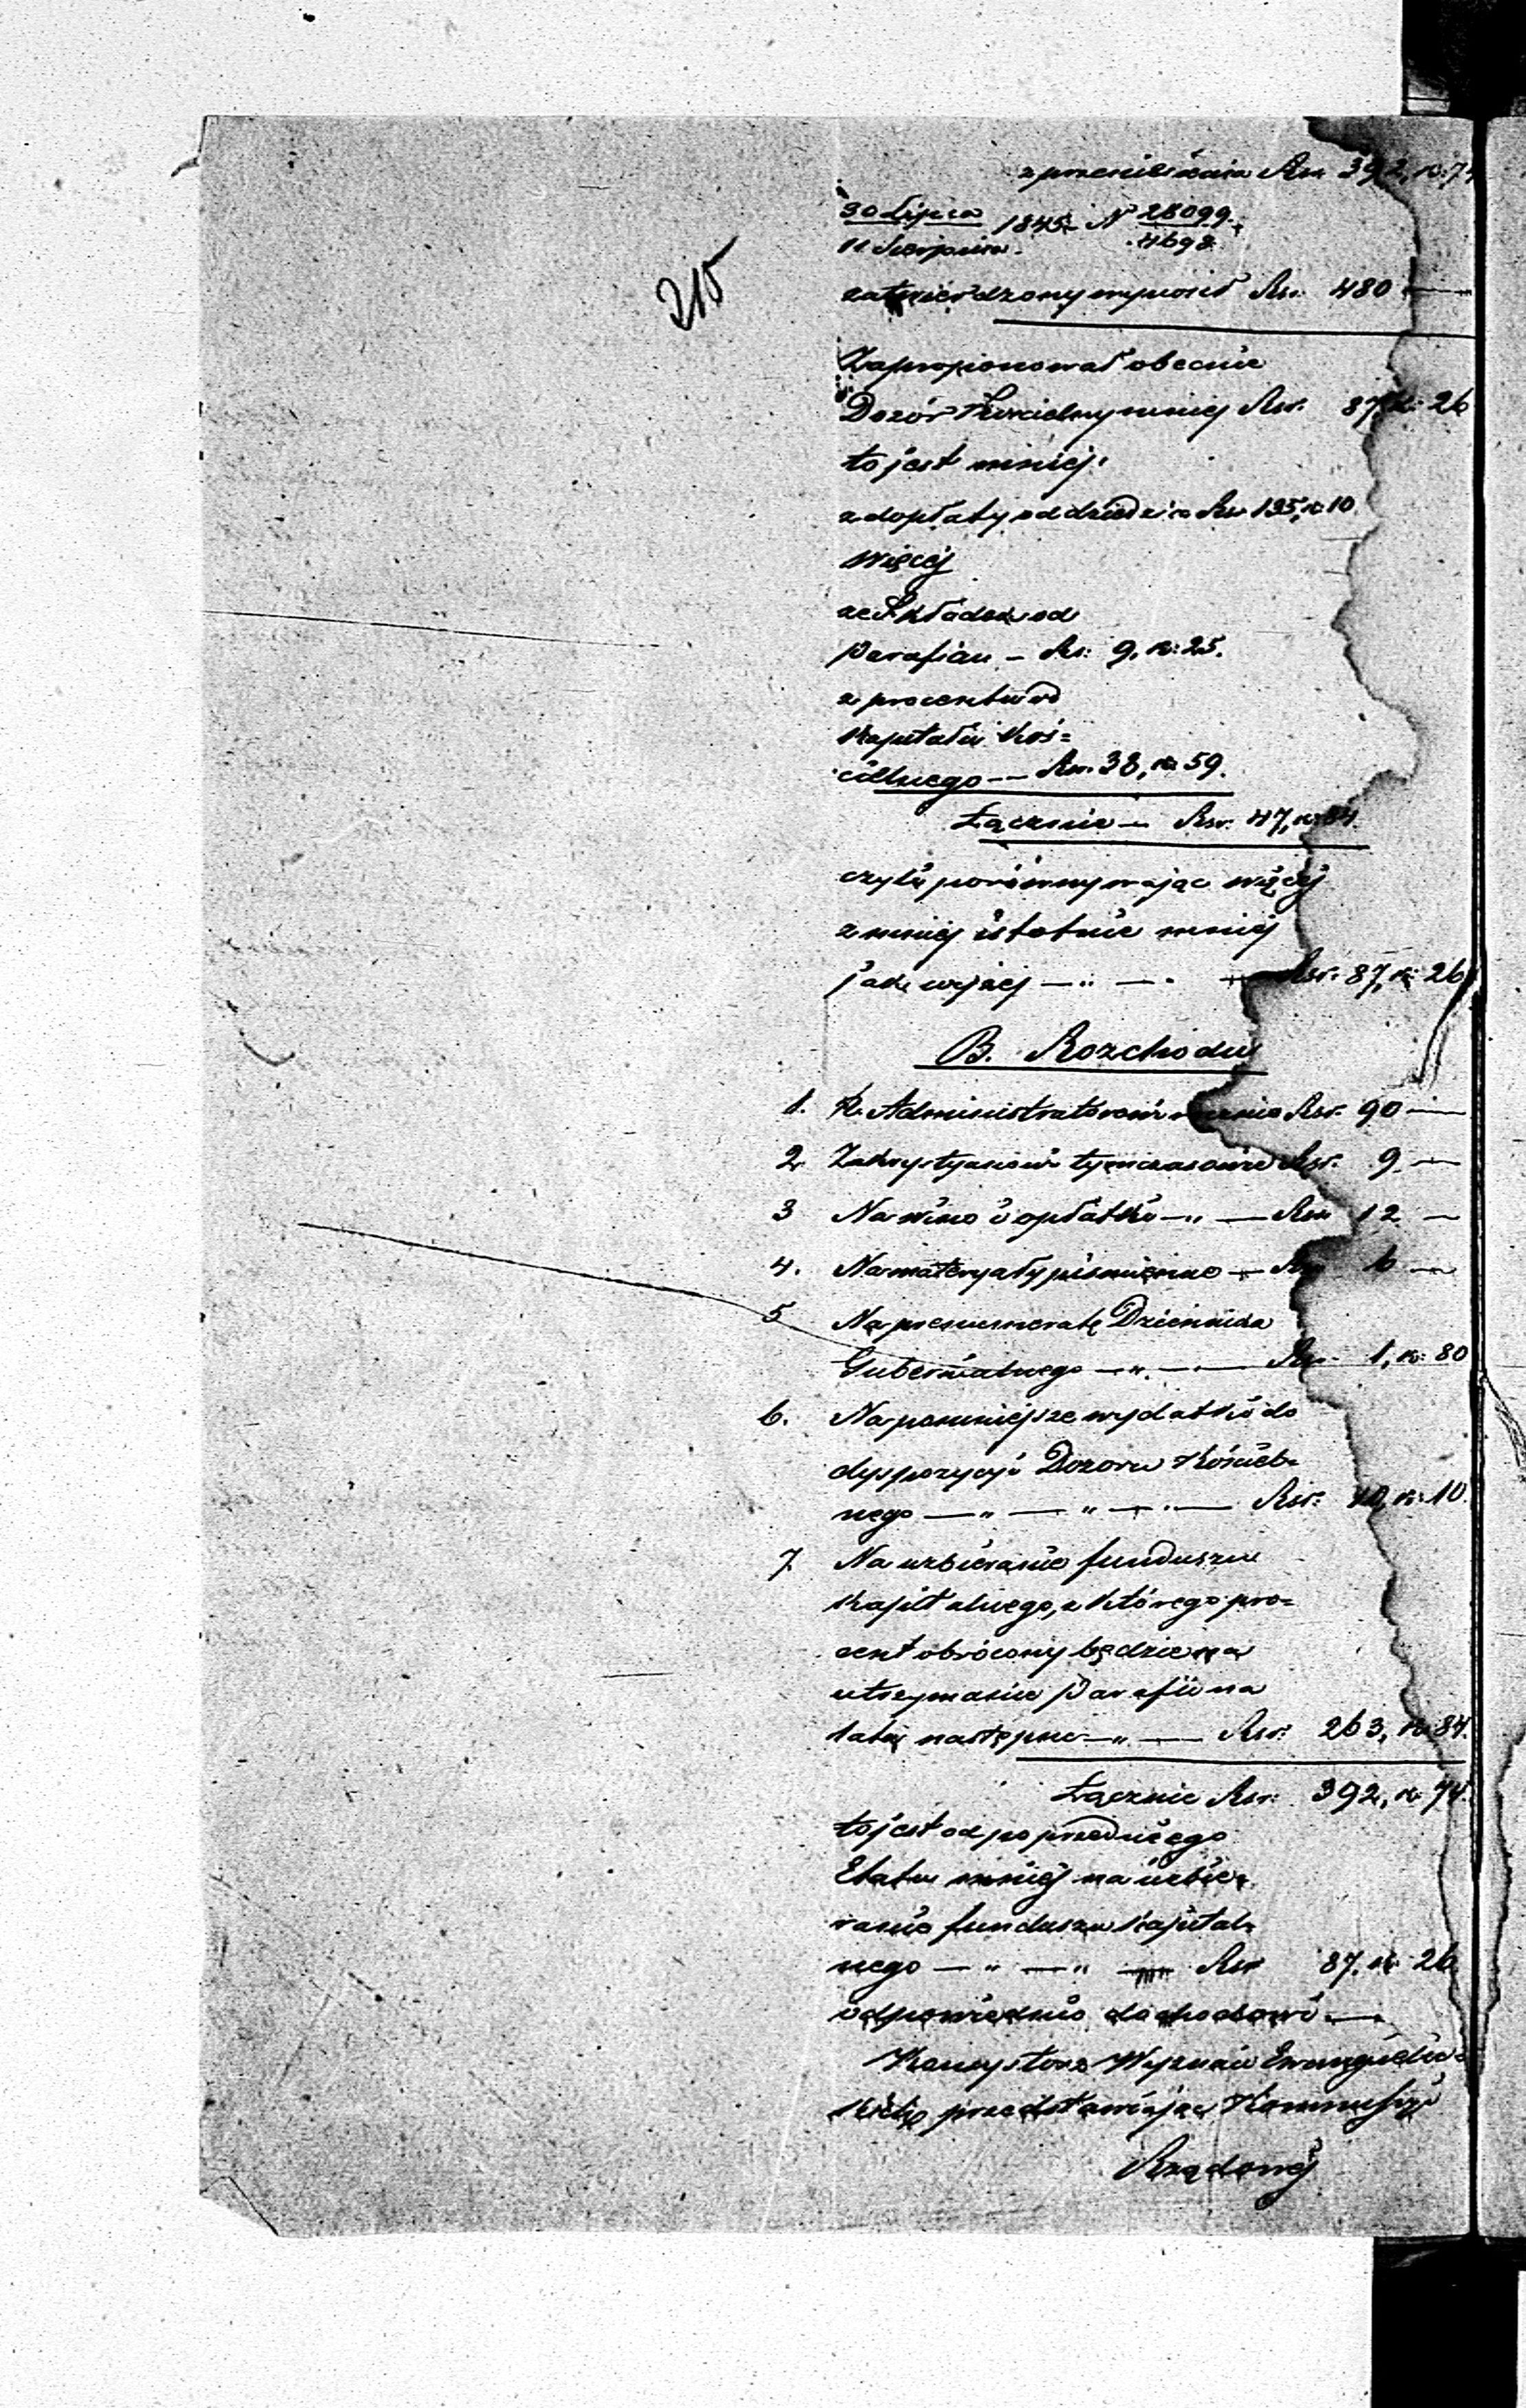 z przeniesienia Rsr. 392, k: 74
215
30 Lipca / 11 Sierpnia 1845 N 28099 / 4698
zatwierdzony wynosił Rsr. 480 —
Zapropionował obecnie
Dozór Kościelny mniej Rsr. 87, k: 26
to jest mniej:
z dopłaty od dziedzica Rsr. 135, k: 10
więcej
ze Składek od
Parafian — Rs: 9, k: 25.
z procentu od
Kapitału Koś=
cielnego — Rsr. 38, k: 59.
Łącznie — Rsr. 47, k: 84.
czyli porównywając więcej
z mniej istotnie mniej
jak wyżej — " — Rsr. 87, k: 26
B. Rozchodu
1. K. Administratorowi Rsr. 90 —
2. Zakrystyanowi tymczasowie Rsr. 9 —
3 Na wino i opłatki — " — Rsr. 12 —
4. Na materyały piśmienne — Rsr. 6 —
5 Na prenumeratę Dziennika
Gubernialnego — " — Rsr. 1, k: 80
6. Na pomniejsze wydatki do
dyspozycyi Dozoru Kościel=
nego — " — " — Rsr. 10, k: 10.
7. Na uzbieranie funduszu
kapitalnego, z którego pro=
cent obrócony będzie na
utrzymanie Parafii na
lata następne — " — Rsr. 263, k: 84.
Łącznie Rsr. 392, k: 74.
to jest od poprzedniego
Etatu mniej na uzbie=
ranie funduszu kapital=
nego — " — " Rsr 87, k: 26
odpowiednio dochodowi —
Konsystorz Wyznań Ewangielic=
kich przedstawiając Kommissyi
Rządowej